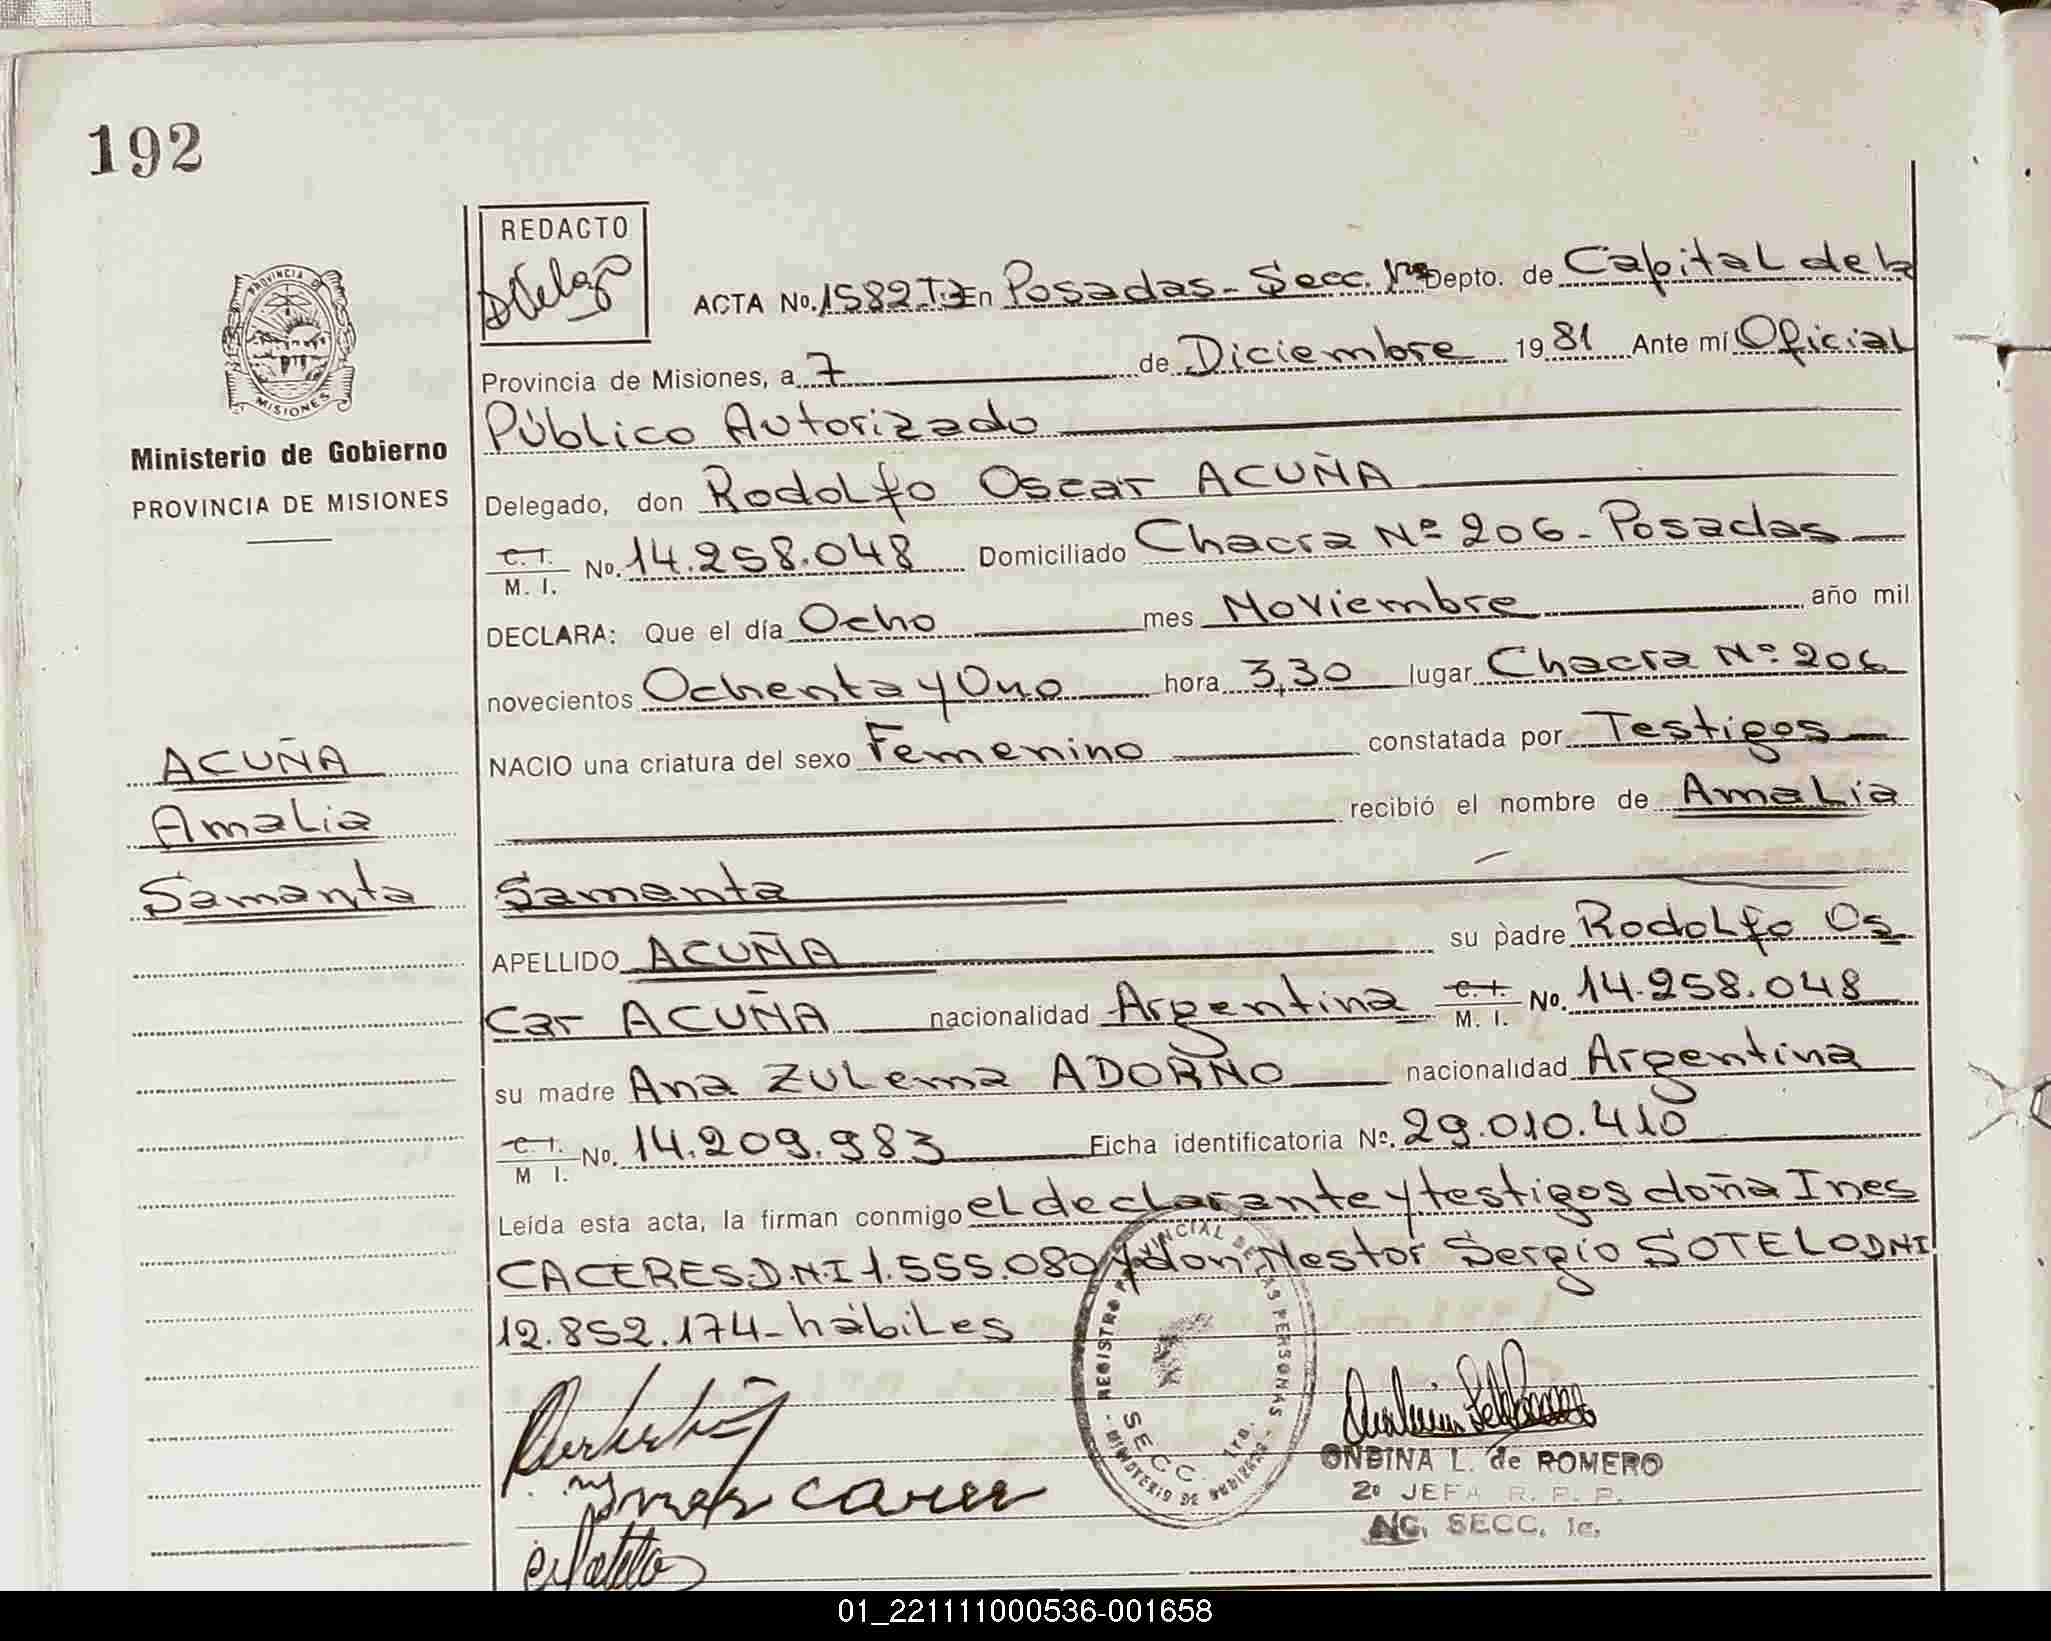 192
REDACTO
PROVINCIA DE
MISIONES
Ministerio de Gobierno
PROVINCIA DE MISIONES
ACTA No. 1582 En Posadas - Secc. 1ra Depto. de Capital de la
Provincia de Misiones, a 7 de Diciembre 1981 Ante mí Oficial
Público Autorizado
Delegado, don Rodolfo Oscar ACUÑA
C. I.
M. I. No. 14.258.048 Domiciliado Chacra Nº 206 - Posadas
DECLARA: Que el día Ocho mes Noviembre año mil
novecientos Ochenta y Uno hora 3,30 lugar Chacra Nº 206
NACIO una criatura del sexo Femenino constatada por Testigos
recibió el nombre de Amalia
Samanta
APELLIDO ACUÑA su padre Rodolfo Os
car ACUÑA nacionalidad Argentina C. I. M. I. No. 14.258.048
su madre Ana Zulema ADORNO nacionalidad Argentina
C. I.
M I. No. 14.209.983 Ficha identificatoria No. 29.010.410
Leída esta acta, la firman conmigo el declarante y testigos doña Ines
CACERES D.N.I 1.555.080 y don Nestor Sergio SOTELO DNI
12.852.174 - hábiles
ACUÑA
Amalia
Samanta
REGISTRO PROVINCIAL DE LAS PERSONAS
SECC. 1ra.
MINISTERIO DE GOBIERNO
Ines Caceres
ONDINA L. de ROMERO
2º JEFA R. P. P.
SECC. 1a.
01_221111000536-001658